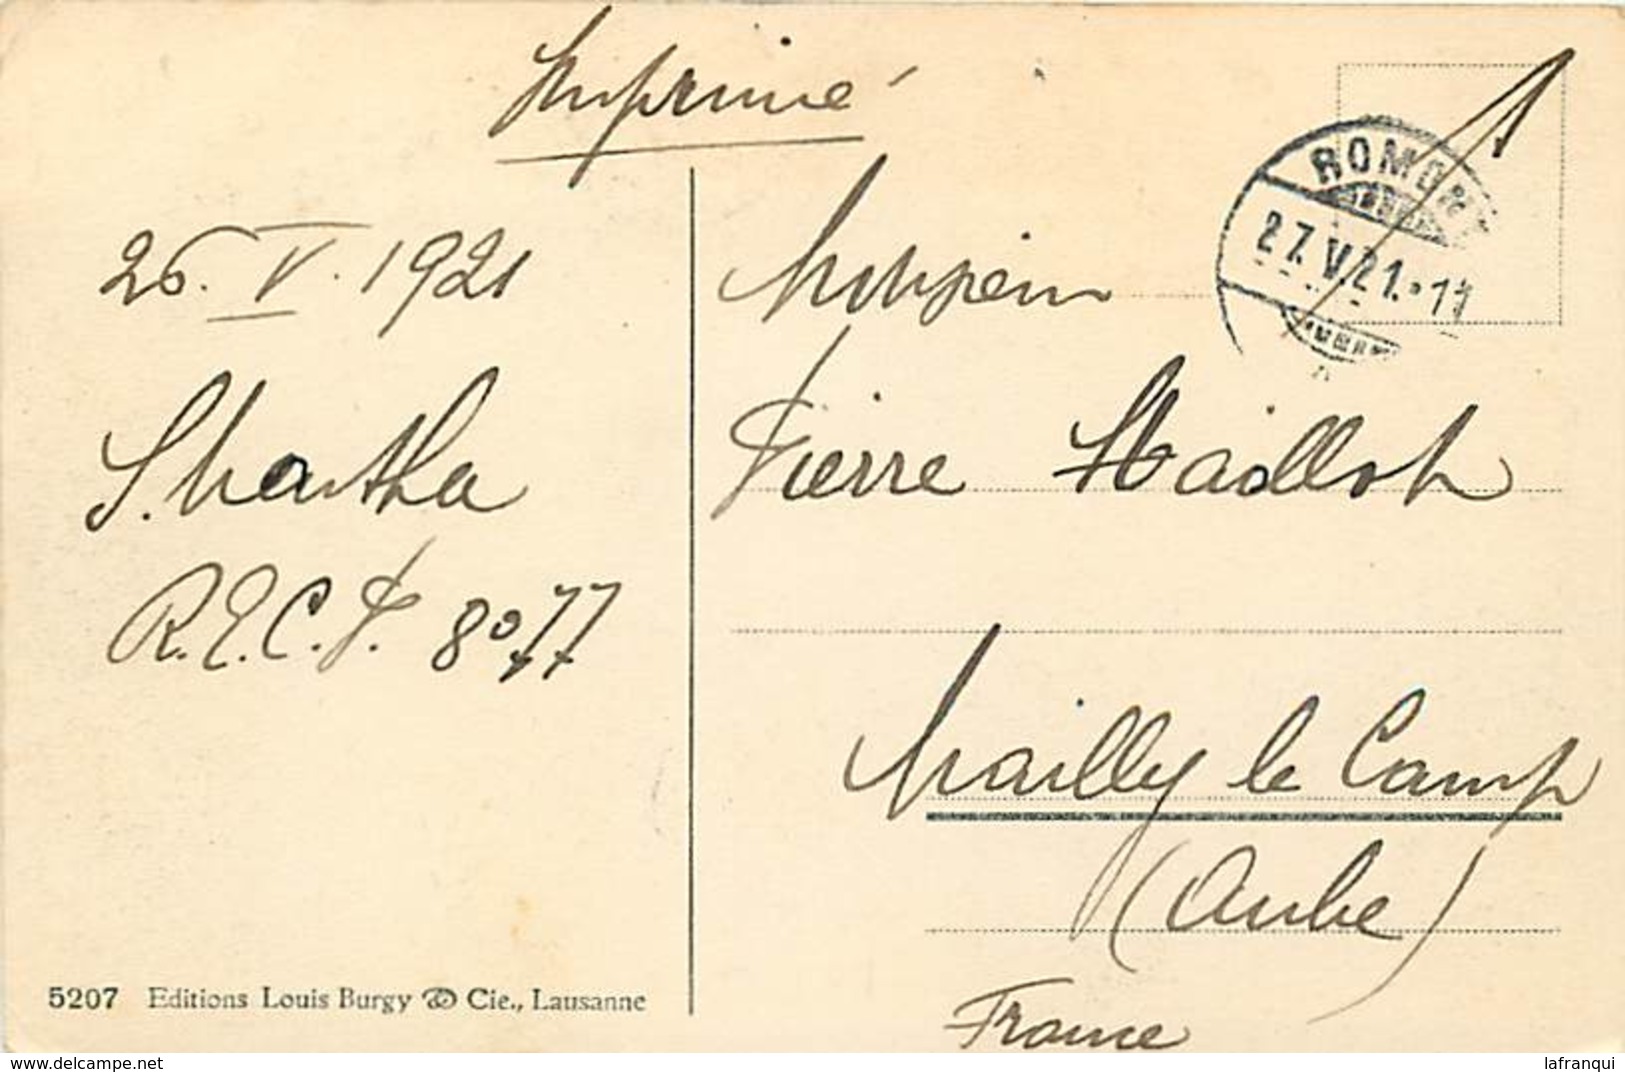 Imprimé
26. V. 1921
R.E.C.P. 8077
ROMONT
27.V.21.
Monsieur
Pierre Maillot
Mailly le Camp
(Aube)
France
5207 Editions Louis Burgy & Cie., Lausanne
lafranqui